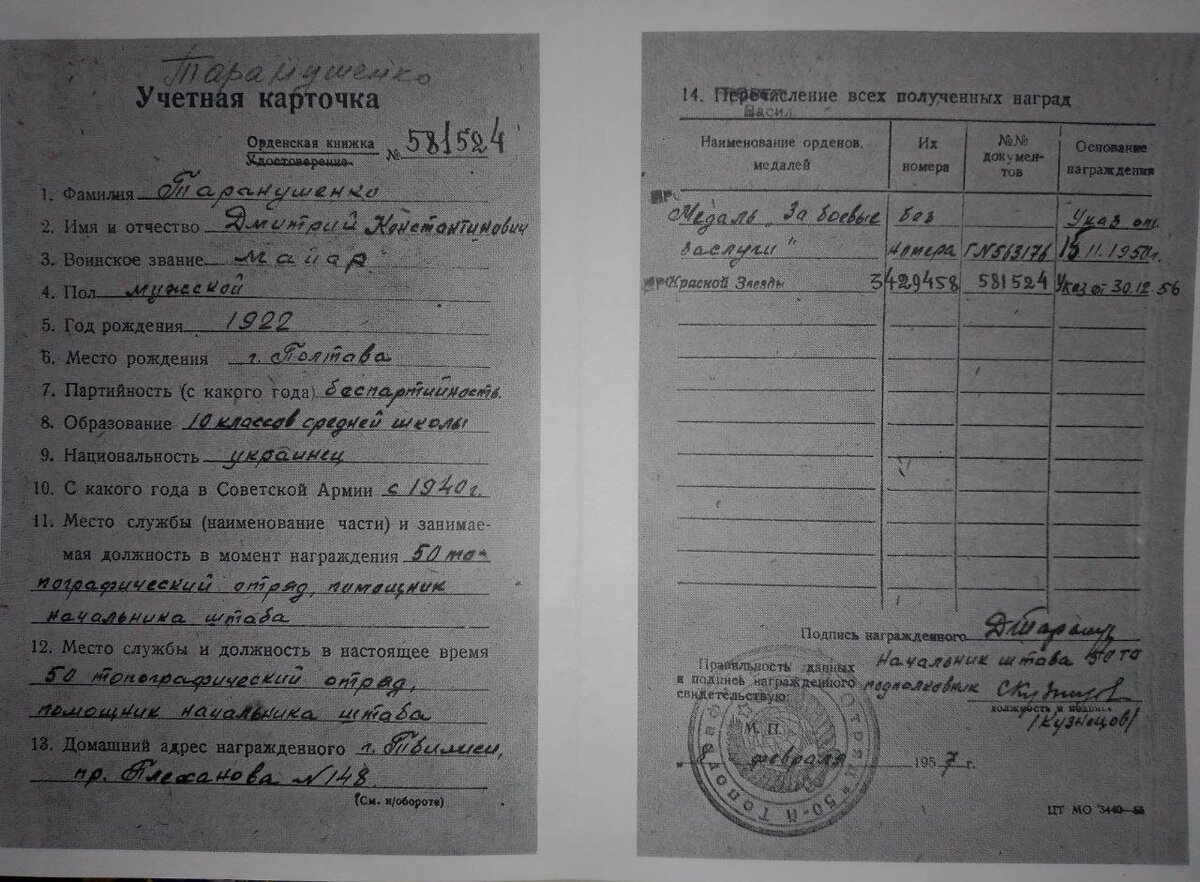 Таранушенко
Учетная карточка
Орденская книжка
Удостоверение № 581524
1. Фамилия Таранушенко
2. Имя и отчество Дмитрий Константинович
3. Воинское звание майор
4. Пол мужской
5. Год рождения 1922
6. Место рождения г. Полтава
7. Партийность (с какого года) беспартийность.
8. Образование 10 классов средней школы
9. Национальность украинец
10. С какого года в Советской Армии с 1940 г.
11. Место службы (наименование части) и занимае-
мая должность в момент награждения 50 то-
пографический отряд, помощник
начальника штаба
12. Место службы и должность в настоящее время
50 топографический отряд,
помощник начальника штаба
13. Домашний адрес награжденного г. Тбилиси,
пр. Плеханова N 148.
(См. н/обороте)
14. Перечисление всех полученных наград
Васил
Наименование орденов, медалей
Их номера
№№ докумен-тов
Основание награждения
Медаль „За боевые без Указ от
заслуги" номера Г N563176 15 11.1950г.
Красной Звезды 3429458 581524 Указ от 30.12.56
Подпись награжденного ДТарану
Правильность данных Начальник штаба 50 то
и подпись награжденного подполковник СКузнецов
свидетельствую: должность и подпись
/Кузнецов/
М. П.
февраля 1957 г.
50-й Топограф Отряд
ЦТ МО 3440-56